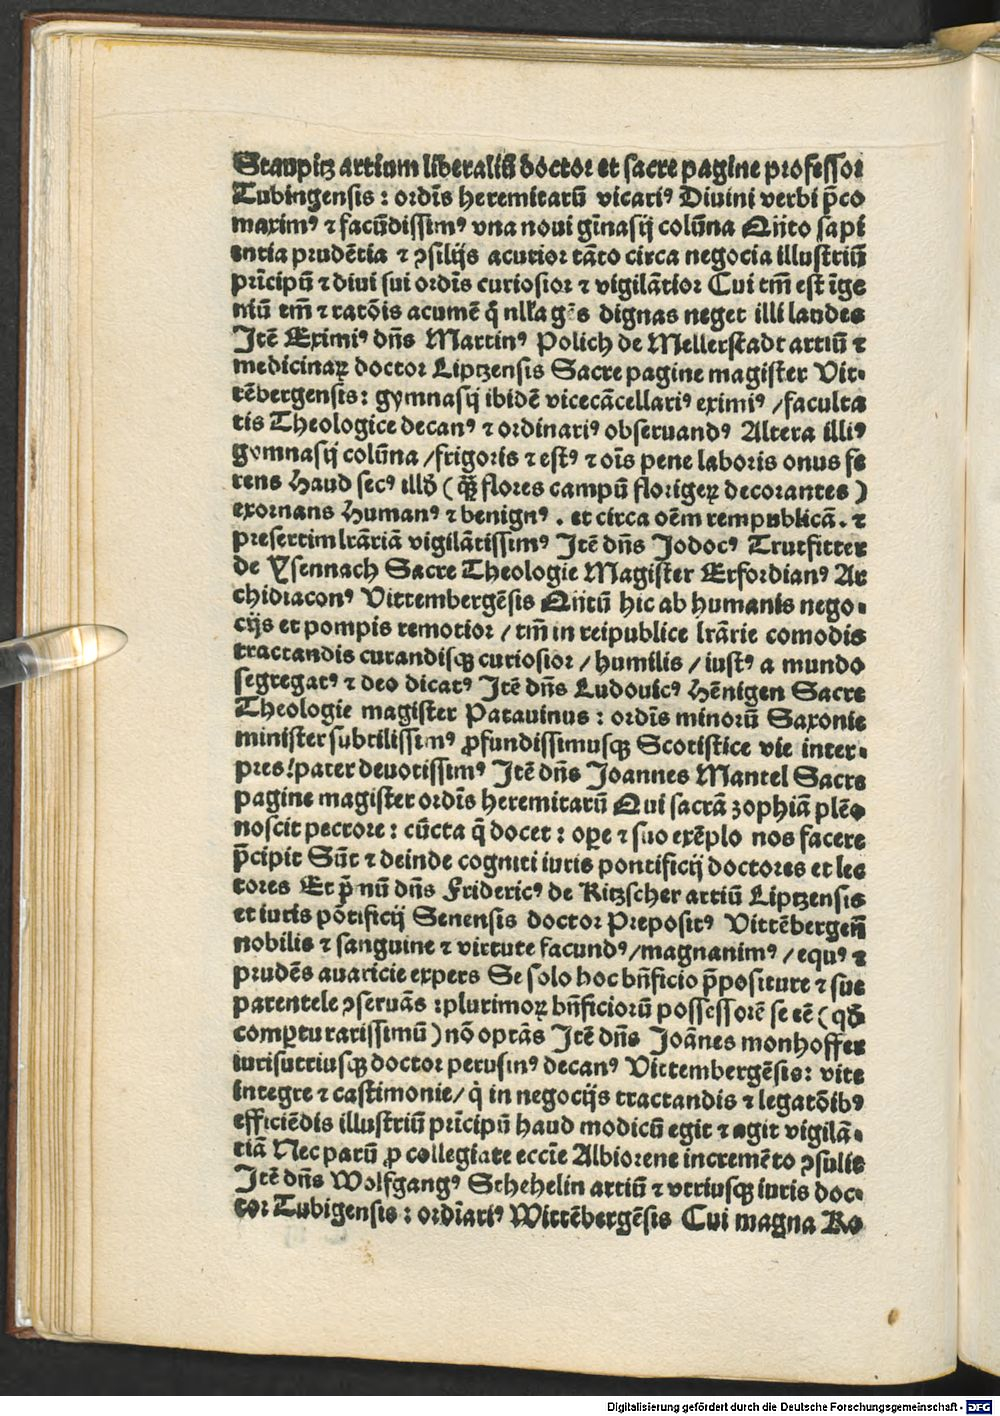 Staupitz artium liberaliū doctor et sacre pagine professor
Tubingensis : ordīs heremitarū vicariꝰ Diuini verbi p̄co
maximꝰ ⁊ facūdissimꝰ vna noui gīnasij colūna Qn̄to sapi
entia prudētia ⁊ ꝯsilijs acutior tāto circa negocia illustriū
prīcipū ⁊ diui sui ordīs curiosior ⁊ vigilātior Cui tm̄ est īge
niū tm̄ ⁊ ratōis acumē q̄ nll'a gēs dignas neget illi laudes
Itē Eximiꝰ dn̄s Martinꝰ Polich de Mellerstadt artiū ⁊
medicinaꝝ doctor Liptzensis Sacre pagine magister Vit⸗
tēbergensis: gymnasij ibidē vicecācellariꝰ eximiꝰ /faculta
tis Theologice decanꝰ ⁊ ordinariꝰ obseruandꝰ Altera illiꝰ
gymnasij colūna /frigoris ⁊ estꝰ ⁊ oīs pene laboris onus fe
rens Haud secꝰ illd̄ ( qꝫ flores campū florigeꝝ decorantes )
exornans Humanꝰ ⁊ benignꝰ . et circa oēm rempublicā . ⁊
presertim lr̄āriā vigilātissimꝰ Itē dn̄s Jodocꝰ Trutfitter
de Ysennach Sacre Theologie Magister Erfordianꝰ Ar
chidiaconꝰ Vittembergēsis Qn̄tū hic ab humanis nego⸗
cijs et pompis remotior / tm̄ in reipublice lr̄ārie comodis
tractandis curandisqꝫ curiosior / humilis / iustꝰ a mundo
segregatꝰ ⁊ deo dicatꝰ Itē dn̄s Ludouicꝰ Hēnigen Sacre
Theologie magister Patauinus : ordīs minorū Saxonie
minister subtilissimꝰ ꝓfundissimusqꝫ Scotistice vie inter⸗
pres! pater deuotissimꝰ Itē dn̄s Joannes Mantel Sacre
pagine magister ordīs heremitarū Qui sacrā zophiā plēo
noscit pectore : cūcta q̄ docet : oꝑe ⁊ suo exēplo nos facere
p̄cipit Sūt ⁊ deinde cogniti iuris pontificij doctores et lec
tores Et p̄ nū dn̄s Fridericꝰ de Kitzscher artiū Liptzensis
et iuris pōtificij Senensis doctor Prepositꝰ Vittēbergen̄
nobilis ⁊ sanguine ⁊ virtute facundꝰ /magnanimꝰ / equꝰ ⁊
prudēs auaricie expers Se solo hoc bn̄ficio p̄positure ⁊ sue
parentele ꝯseruās : plurimoꝝ bn̄ficiorū possessorē se eē ( qd̄
comꝑtu rarissimū ) nō optās Itē dn̄s Joānes monhoffer
iurisutriusqꝫ doctor perusinꝰ decanꝰ Vittembergēsis: vite
integre ⁊ castimonie/ q̇ in negocijs tractandis ⁊ legatōibꝰ
efficiēdis illustriū prīcipū haud modicū egit ⁊ agit vigilā⸗
tiā Nec parū ꝓ collegiate ecc̄ie Albiorene incremēto ꝯsulit
Itē dn̄s Wolfgangꝰ Schehelin artiū ⁊ vtriusqꝫ iuris doc⸗
tor Tubigensis : ordīariꝰ Wittēbergēsis Cui magna Ro
Digitalisierung gefördert durch die Deutsche Forschungsgemeinschaft - DFG